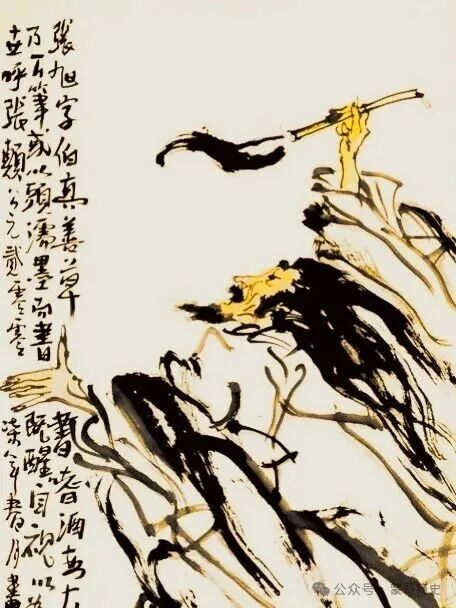 張旭字伯真善草書嗜酒每大
乃下筆或以頭濡墨而書既醒自視以
世呼張顛公元貳零零柒年春月畫
公众号